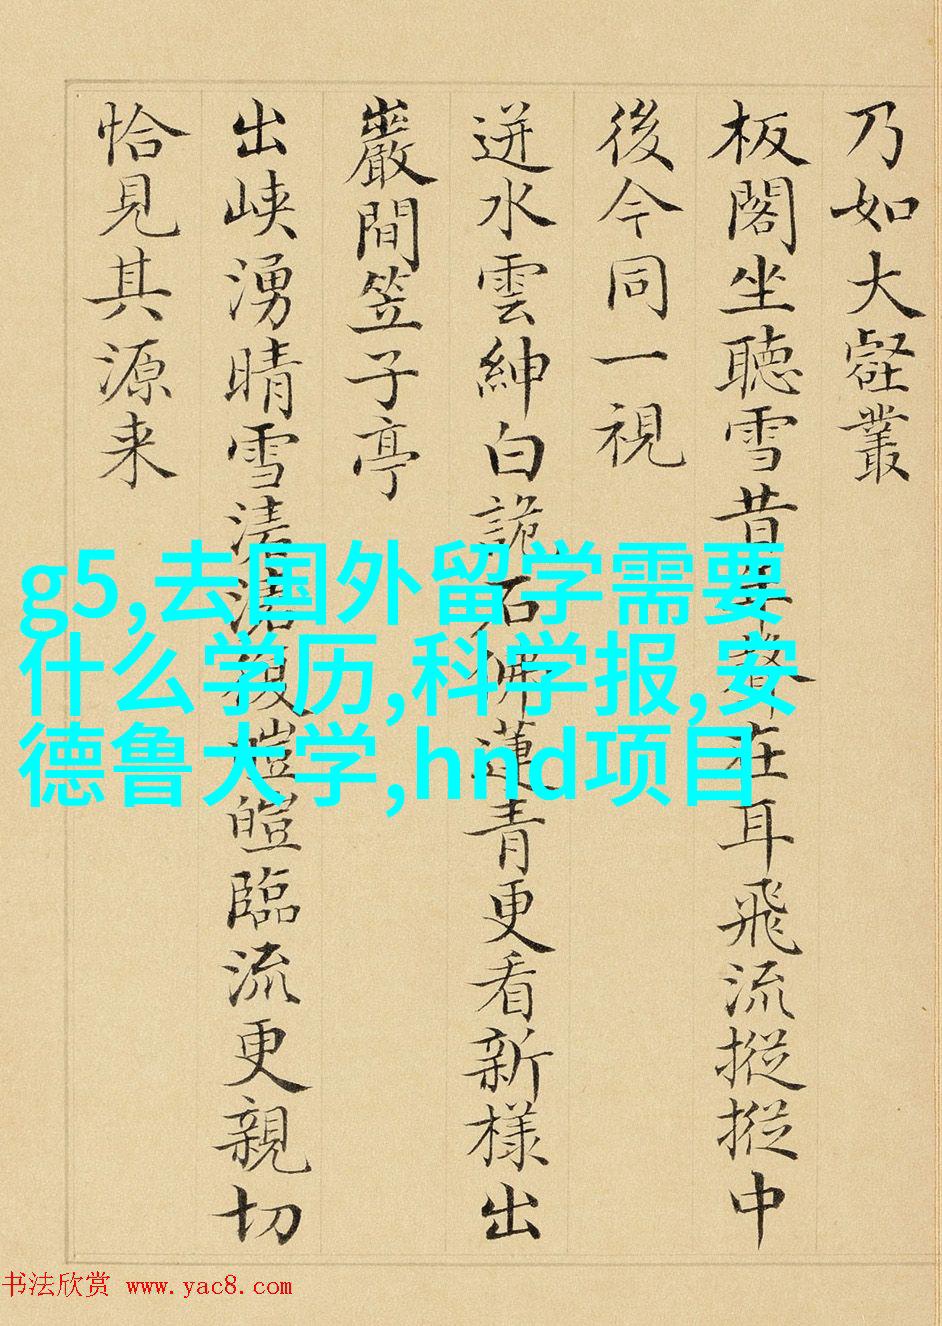 乃如大壑叢
板閣坐聽雪昔年聲在耳飛流摐摐中
後今同一視
迸水雲紳白詭石佛蓮青更看新樣出
巖間笠子亭
出峽湧晴雪溱溱復皚皚臨流更親切
恰見其源来
g5,去国外留学需要
什么学历,科学报,安
德鲁大学,hnd项目
书法欣赏 www.yac8.com